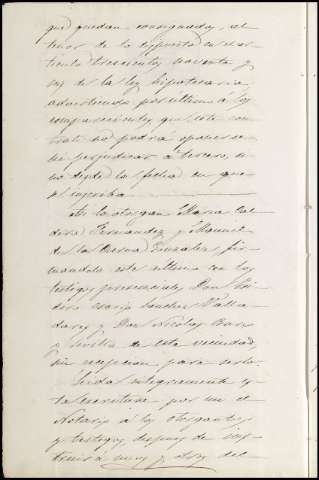 que quedan consignadas, al
tenor de lo dispuesto en el ar-
tículo trescientos noventa y
seis de la ley hipotecaria
advirtiendo por último á los
comparecientes que este con-
trato no podrá oponerse
ni perjudicar á tercero, si
no desde la fecha en que
se inscriba.
Así lo otorgan Maria
Fernandez y Manuel
de la Cuerva Gonzalez, fir-
mandolo este ultimo con los
testigos presenciales Don Isi-
doro Sanchez Valla-
dares y Don Nicolas
y de esta vecindad,
sin escepcion para serlo.
Leida integramente es-
ta escritura por mi el
Notario á los otorgantes
y testigos despues de ins-
truir á unos y otros del